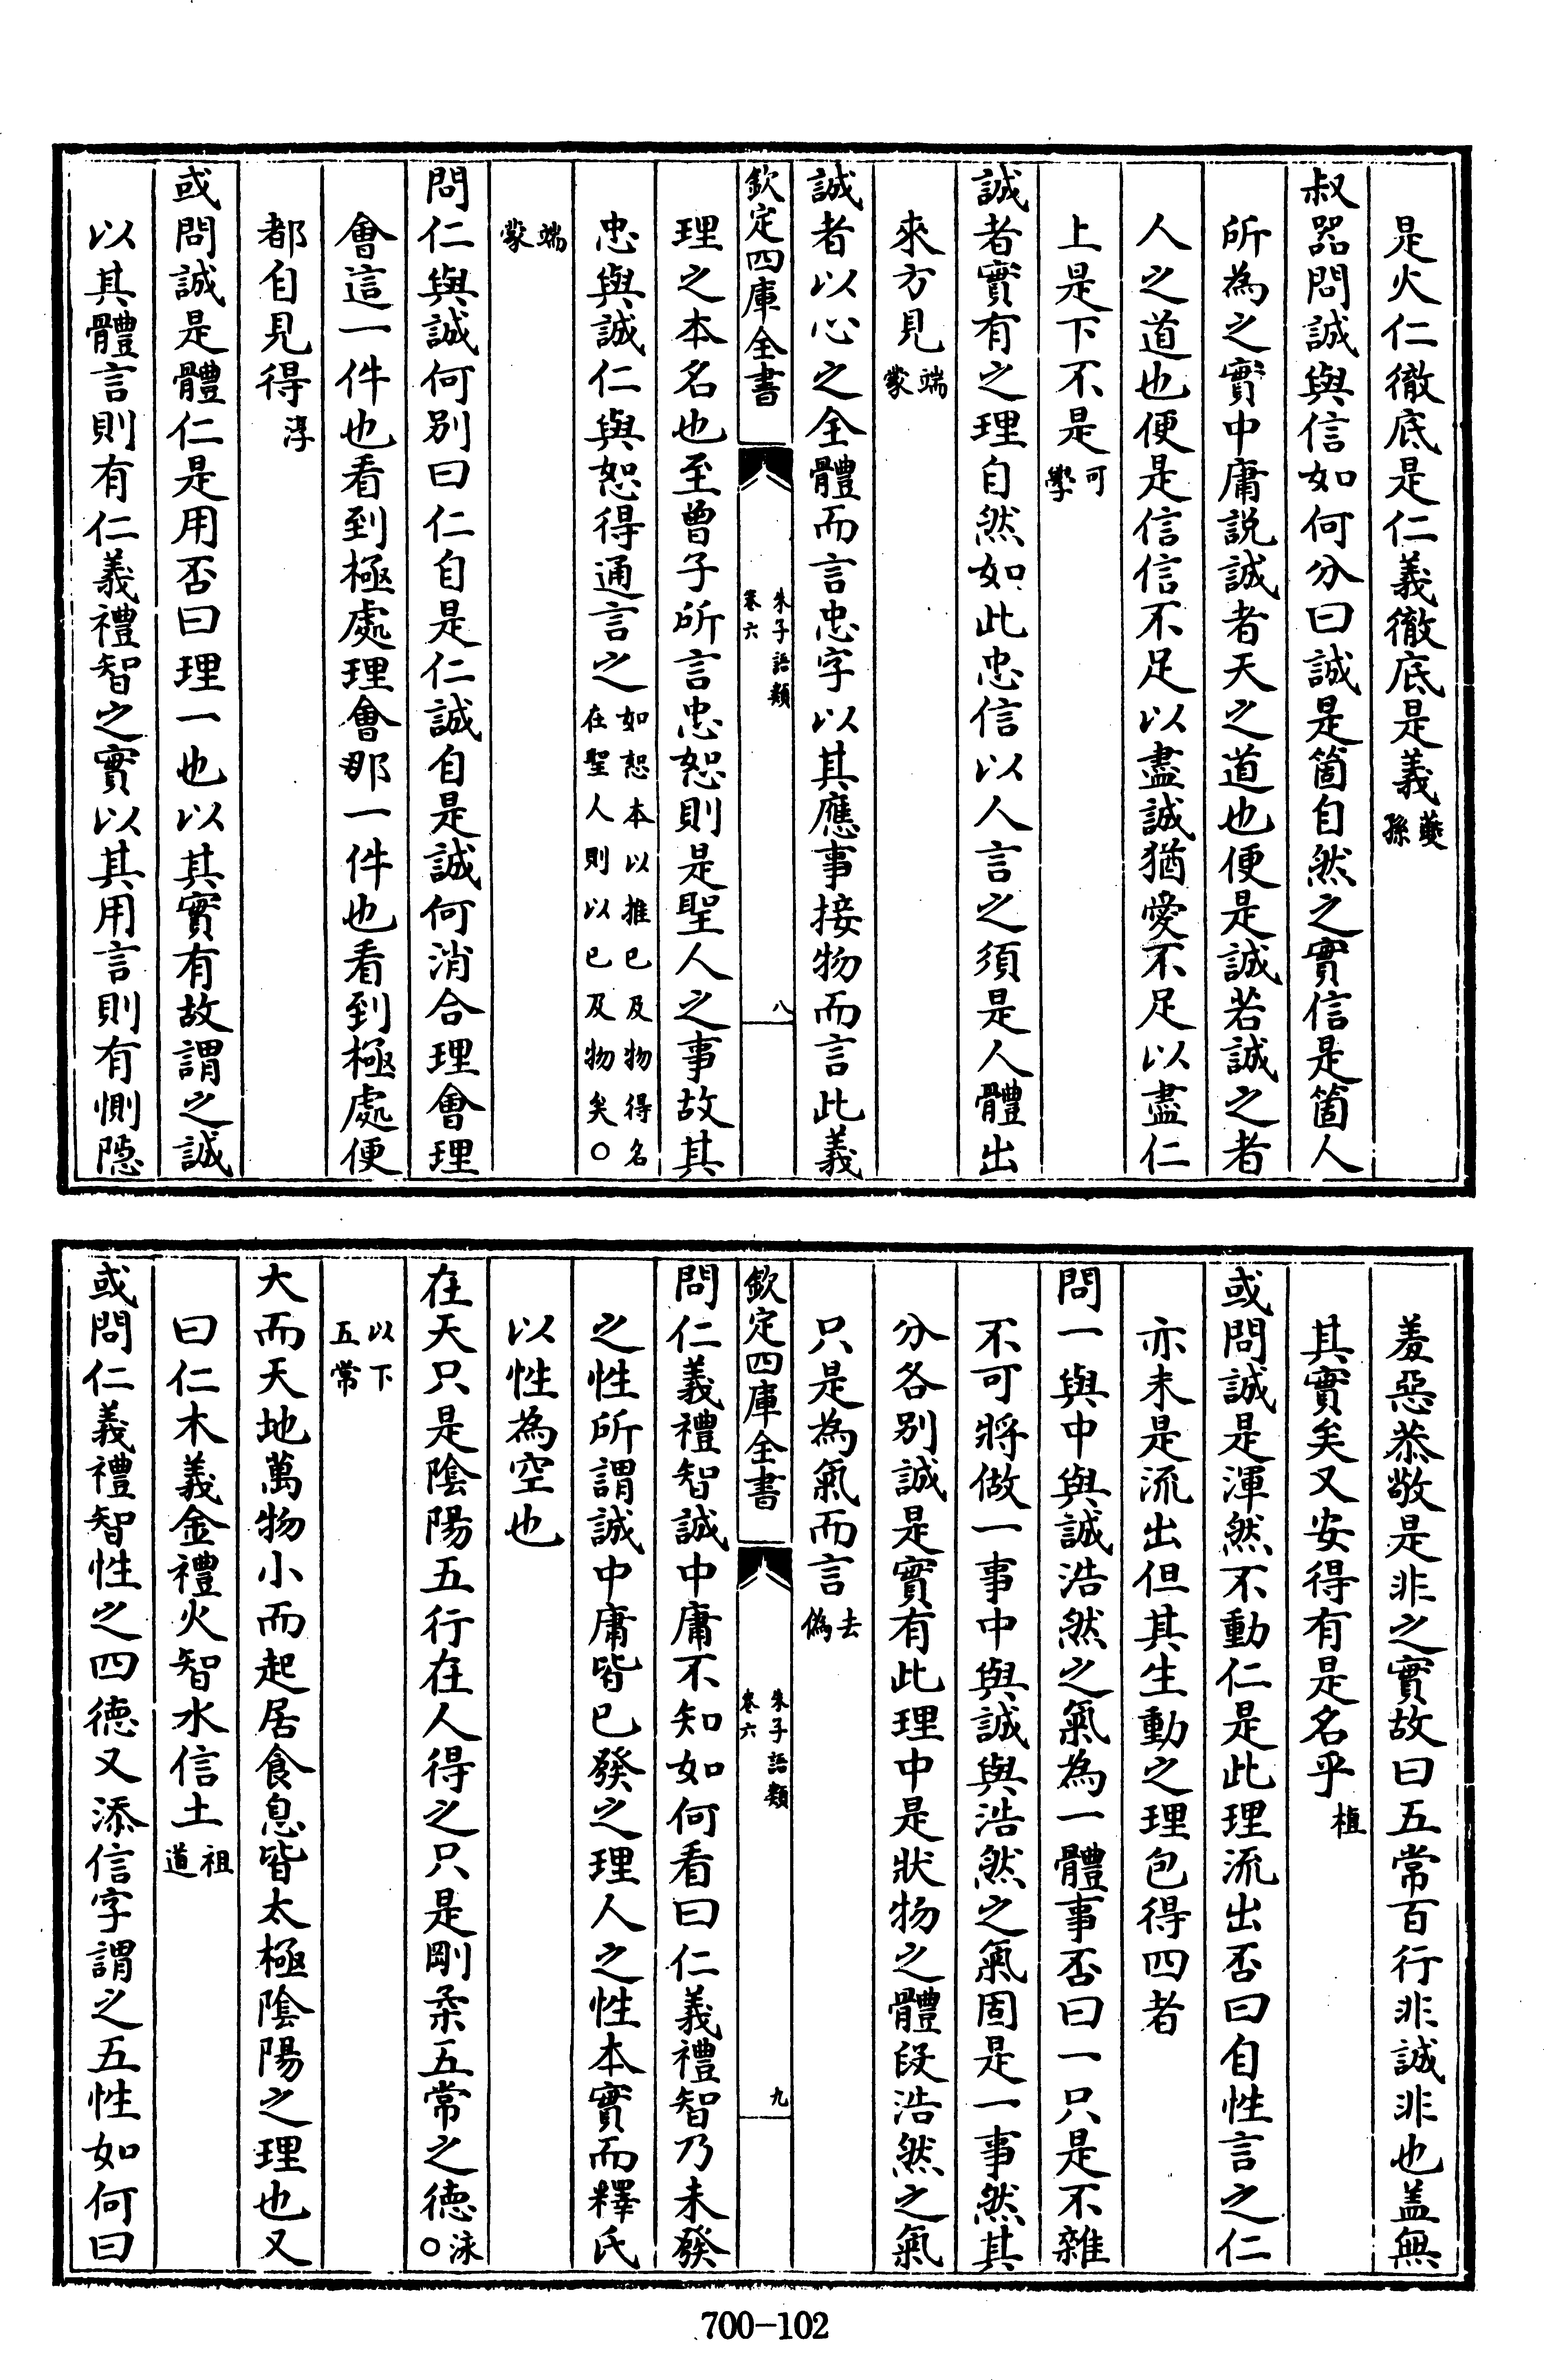 是火仁徹底是仁義徹底是義夔孫
叔器問誠與信如何分曰誠是箇自然之實信是箇人
所為之實中庸説誠者天之道也便是誠若誠之者
人之道也便是信信不足以盡誠猶愛不足以盡仁
上是下不是可學
誠者實有之理自然如此忠信以人言之須是人體出
來方見端蒙
誠者以心之全體而言忠字以其應事接物而言此義
欽定四庫全書
朱子語類
卷六
八
理之本名也至曾子所言忠恕則是聖人之事故其
忠與誠仁與恕得通言之如恕本以推已及物得名在聖人則以已及物矣○
端蒙
問仁與誠何别曰仁自是仁誠自是誠何消合理會理
會這一件也看到極處理會那一件也看到極處便
都自見得淳
或問誠是體仁是用否曰理一也以其實有故謂之誠
以其體言則有仁義禮智之實以其用言則有惻隱
羞惡恭敬是非之實故曰五常百行非誠非也盖無
其實矣又安得有是名乎植
或問誠是渾然不動仁是此理流出否曰自性言之仁
亦未是流出但其生動之理包得四者
問一與中與誠浩然之氣為一體事否曰一只是不雜
不可將做一事中與誠與浩然之氣固是一事然其
分各别誠是實有此理中是狀物之體段浩然之氣
只是為氣而言去偽
欽定四庫全書
朱子語類
卷六
九
問仁義禮智誠中庸不知如何看曰仁義禮智乃未發
之性所謂誠中庸皆已發之理人之性本實而釋氏
以性為空也
在天只是陰陽五行在人得之只是剛柔五常之德泳○
以下五常
大而天地萬物小而起居食息皆太極陰陽之理也又
曰仁木義金禮火智水信土祖道
或問仁義禮智性之四德又添信字謂之五性如何曰
700-102